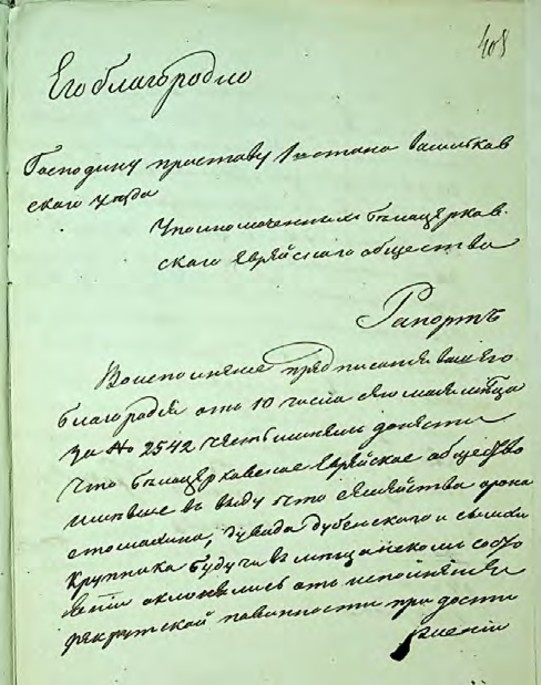 408
Его благородию
Господину приставу 1 го стана васильков
скаго уезда
Уполномоченных белоцерков-
скаго Еврейского общества
Рапортъ
Во исполнение предписания вашего
благородия отъ 10 числа сего мая м-ца
за № 2542 честь имеем донести
что белоцерковское Еврейское общество
имевше в виду что семейства арона
стомахина, дувида дубенского и
Крупника будучи в мещанском состо
янии уклонились отъ исполнения
рекрутской повинности при дости
жении